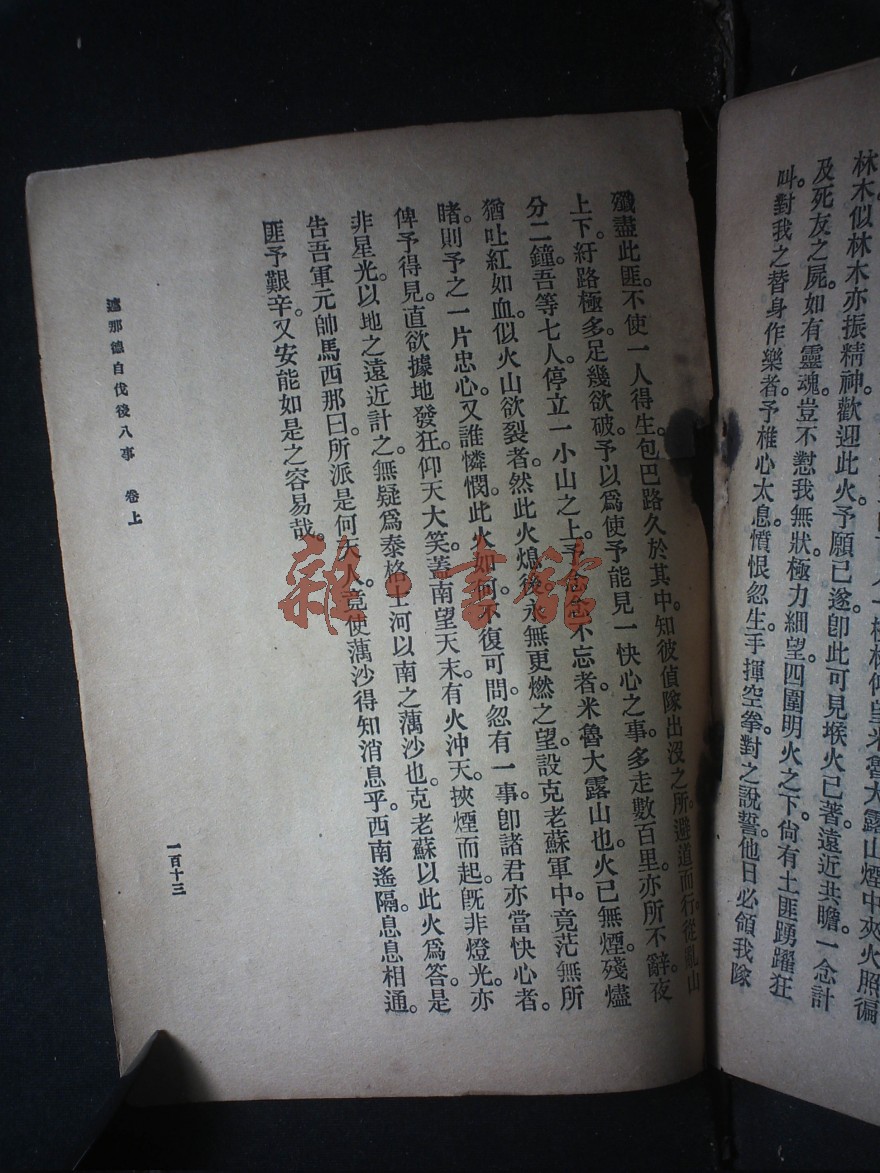 林木似林木亦振精神。歡迎此火予願已遂卽此可見堠火已著。遠近共瞻一念計
及死友之屍。如有靈魂。豈不懟我無狀極力細望四圍明火之下。尙有土匪踴躍狂
叫。對我之替身作樂者。予椎心太息。憤恨忽生手揮空拳對之說誓。他日必領我隊
殲盡此匪。不使一人得生。包巴路久於其中。知彼偵隊出沒之所。避道而行。從亂山
上下。紆路極多。足幾欲破。予以爲使予能見一快心之事。多走數百里。亦所不辭。夜
分二鐘。吾等七人。停立一小山之上。予念念不忘者。米魯大露山也。火已無煙。殘燼
猶吐紅如血。似火山欲裂者。然此火熄後。永無更燃之望。設克老蘇軍中。竟茫無所
睹。則予之一片忠心。又誰憐憫。此火如何。不復可問。忽有一事。卽諸君亦當快心者。
俾予得見。直欲據地發狂。仰天大笑。蓋南望天末。有火沖天。挾煙而起。旣非燈光。亦
非星光。以地之遠近計之。無疑爲泰格土河以南之蕅沙也。克老蘇以此火爲答。是
告吾軍元帥馬西那曰。所派是何天人。竟使蕅沙得知消息乎。西南遙隔。息息相通。
匪予艱辛。又安能如是之容易哉。
那德自伐後八事 卷上
一百十三
雜·書館